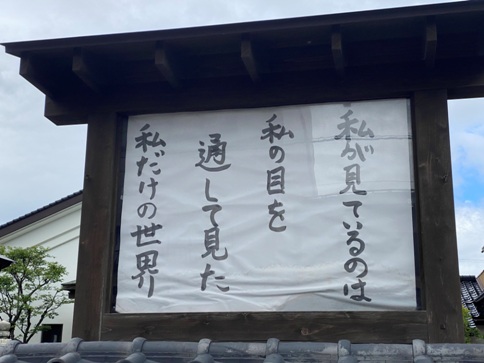 私が見ているのは
私の目を
通して見た
私だけの世界